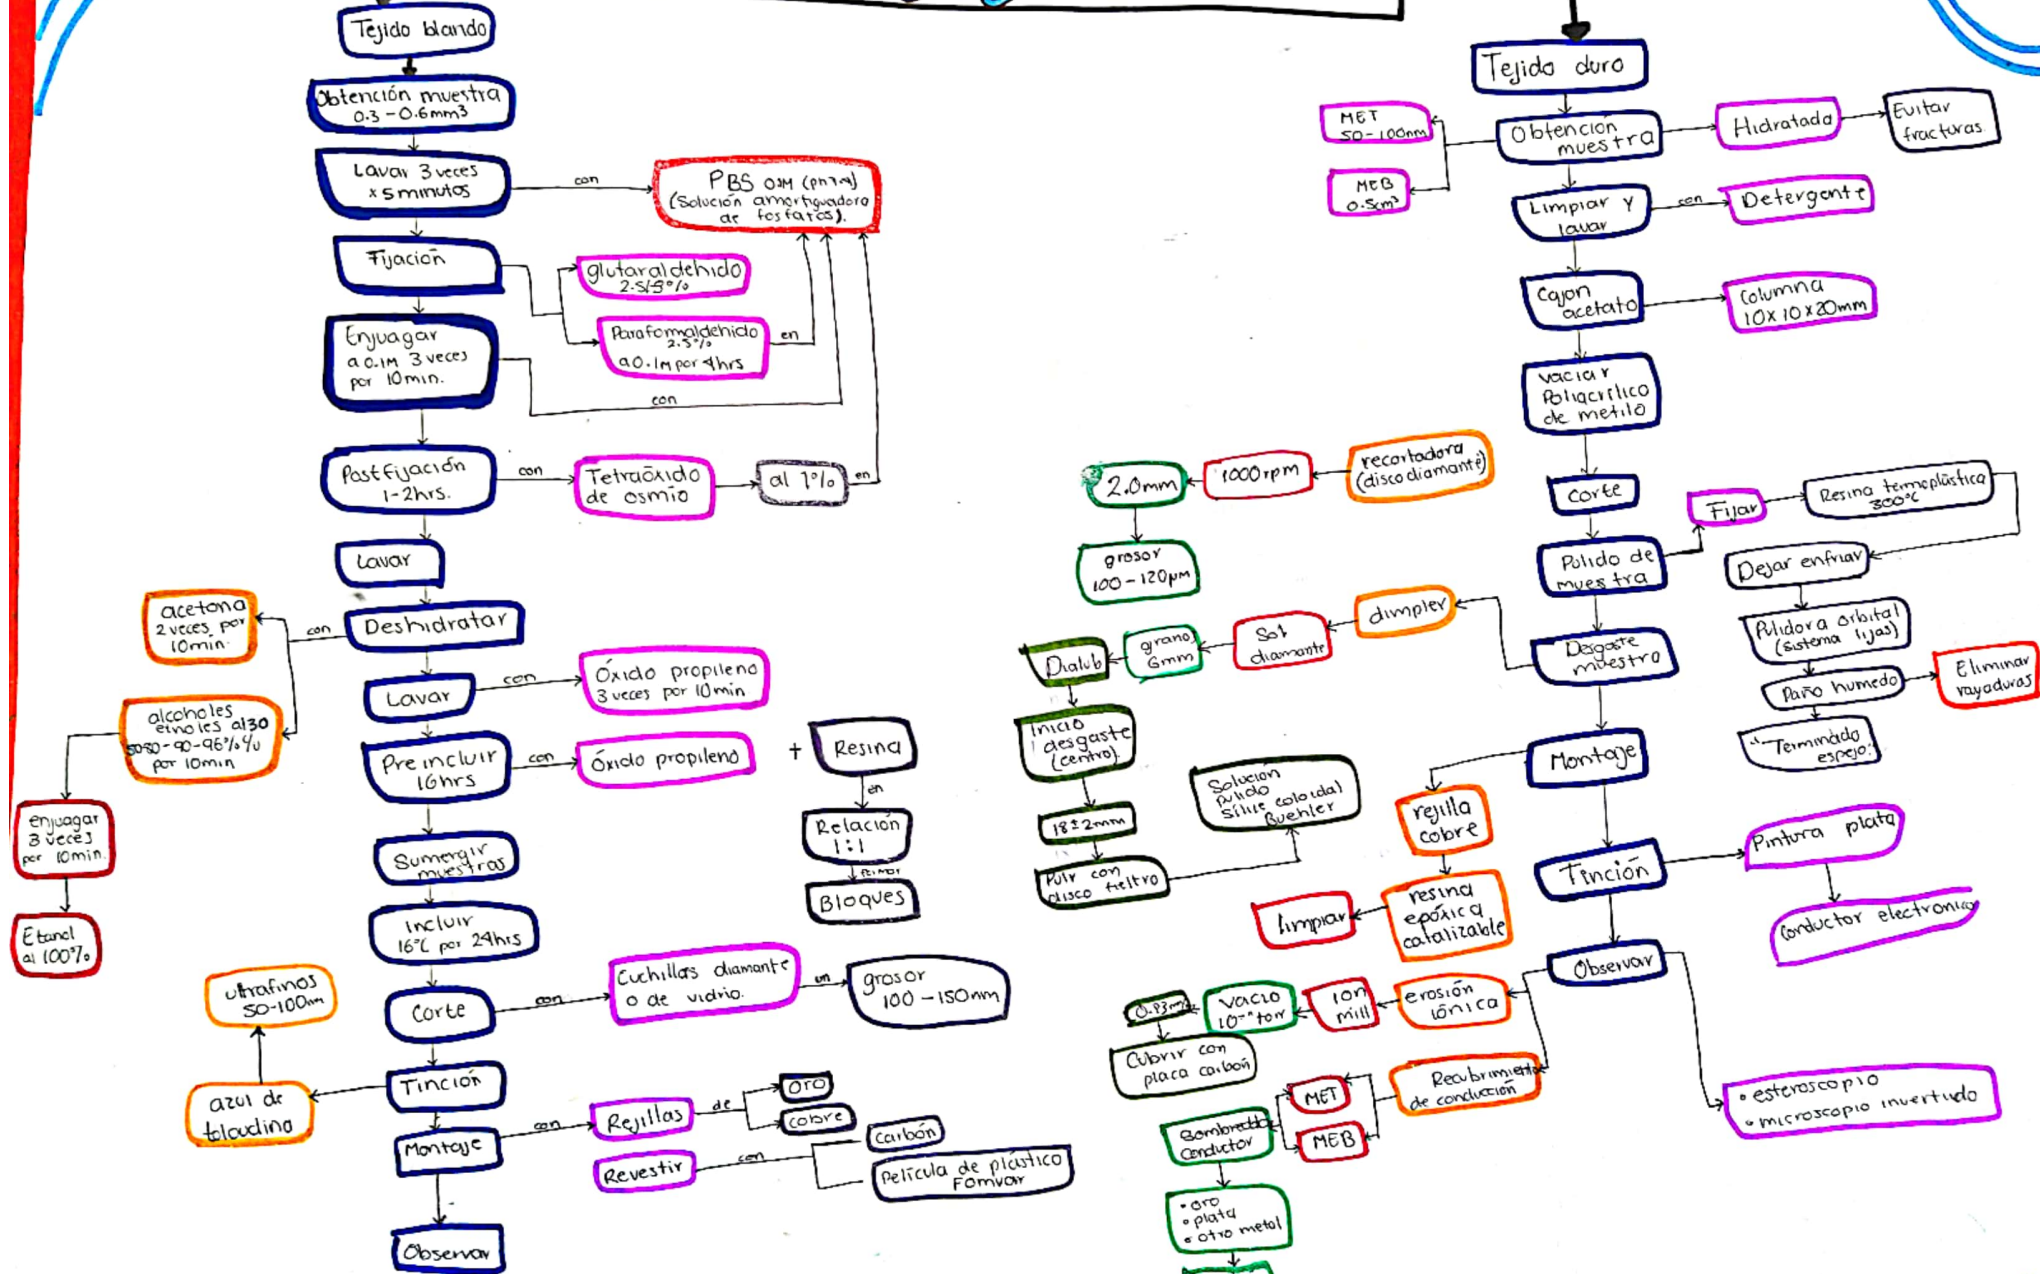 Tejido blando
Obtención muestra
0.3-0.6mm³
Lavar 3 veces
x 5 minutos
con
PBS 0.1M
(Solución amortiguadora
de fosfatos).
Fijación
glutaraldehido
Paraformaldehido
2.5%
a 0.1M por 4hrs
en
Enjuagar
a 0.1M 3 veces
por 10min.
con
Postfijación
1-2hrs.
con
Tetraóxido
de osmio
al 1%
en
Lavar
Deshidratar
con
acetona
2 veces por
10min.
alcoholes
al 30
por 10min
enjuagar
3 veces
por 10min.
Etanol
al 100%
Lavar
con
Óxido propileno
3 veces por 10min
Preincluir
16hrs
con
Óxido propileno
+
Resina
en
Relación
1:1
Bloques
Sumergir
muestras
Incluir
16°C por 24hrs
Corte
con
Cuchillas diamante
o de vidrio.
un
grosor
100-150nm
Tinción
azul de
toloudino
ultrafinos
50-100nm
Montaje
con
Rejillas
de
oro
cobre
Revestir
con
carbón
Película de plástico
Fomvar
Observar
Tejido duro
Obtención
muestra
MET
50-100nm
MEB
0.5cm³
Hidratada
Evitar
fracturas.
Limpiar y
lavar
con
Detergente
Cajon
acetato
Columna
10x10x20mm
Vaciar
Poliacrílico
de metilo
Corte
recortadora
(disco diamante)
1000rpm
2.0mm
grosor
100-120µm
Pulido de
muestra
Fijar
Resina termoplástica
300°C
Dejar enfriar
Pulidora orbital
(sistema lijas)
Paño humedo
Eliminar
rayaduras
"Terminado
espejo"
Desgaste
muestra
dimpler
Sol
diamante
grano
6mm
Dialub
Inicio
desgaste
(centro).
18±2mm
Pulir con
disco fieltro
Solución
pulido
silice coloidal
Buehler
Montaje
rejilla
cobre
resina
epóxica
catalizable
limpiar
Tinción
Pintura plata
Conductor electronico
Observar
erosión
iónica
ion
mill
vacío
Cubrir con
placa carbón
Recubrimiento
de conducción
MET
MEB
Sombreado
conductor
• oro
• plata
• otro metal
• esteroscopio
• microscopio invertudo